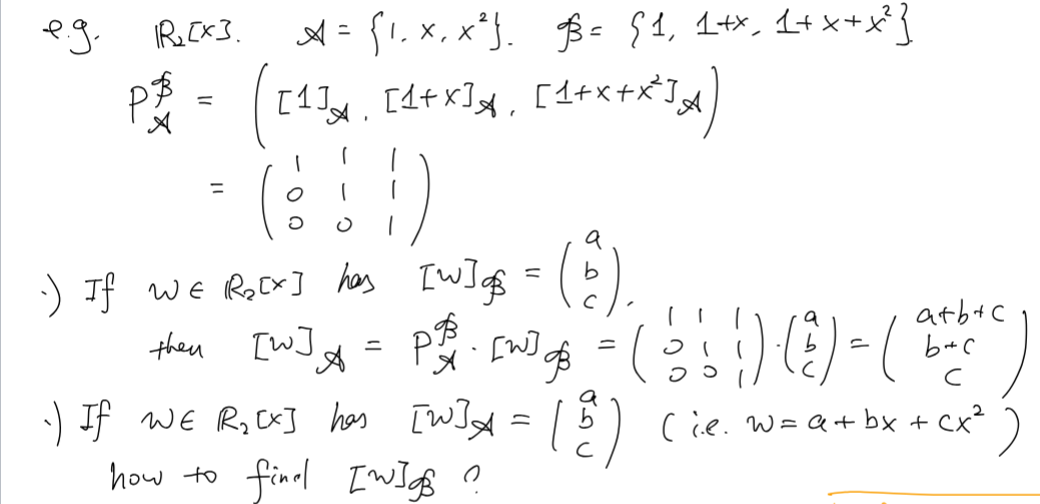 e.g. ℝ₂[x]. 𝒜 = {1, x, x²}. ℬ = {1, 1+x, 1+x+x²}
P_𝒜^ℬ = ([1]_𝒜, [1+x]_𝒜, [1+x+x²]_𝒜)
= (1 1 1
0 1 1
0 0 1)
·) If w ∈ ℝ₂[x] has [w]_ℬ = (a b c),
then [w]_𝒜 = P_𝒜^ℬ · [w]_ℬ = (1 1 1 0 1 1 0 0 1) · (a b c) = (a+b+c b+c c)
·) If w ∈ ℝ₂[x] has [w]_𝒜 = (a b c) (i.e. w = a + bx + cx²)
how to find [w]_ℬ ?